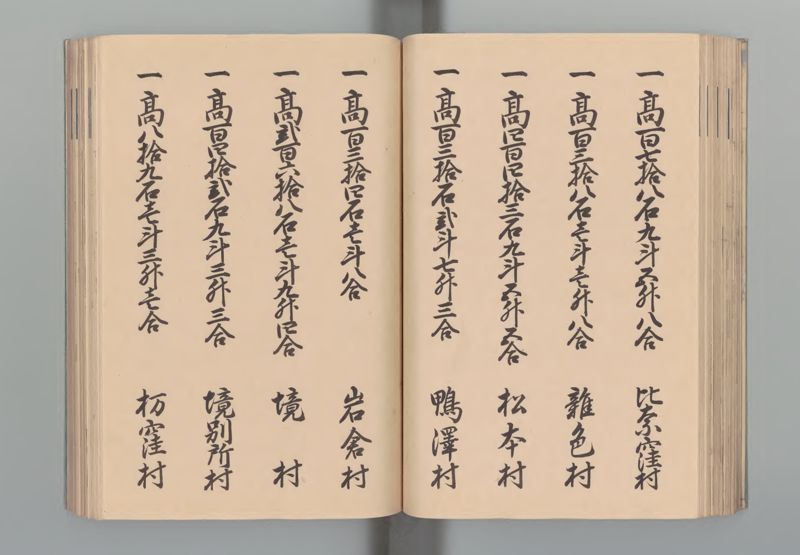 一 高百七拾八石九斗五升八合 比奈窪村
一 高百三拾八石壱斗壱升八合 雑色村
一 高四百四拾三石九斗五升五合 松本村
一 高百三拾石弐斗七升三合 鴨澤村
一 高百三拾四石壱斗八合 岩倉村
一 高弐百六拾八石壱斗九升四合 境村
一 高百四拾弐石九斗三升三合 境別所村
一 高八拾九石壱斗三升壱合 杤窪村